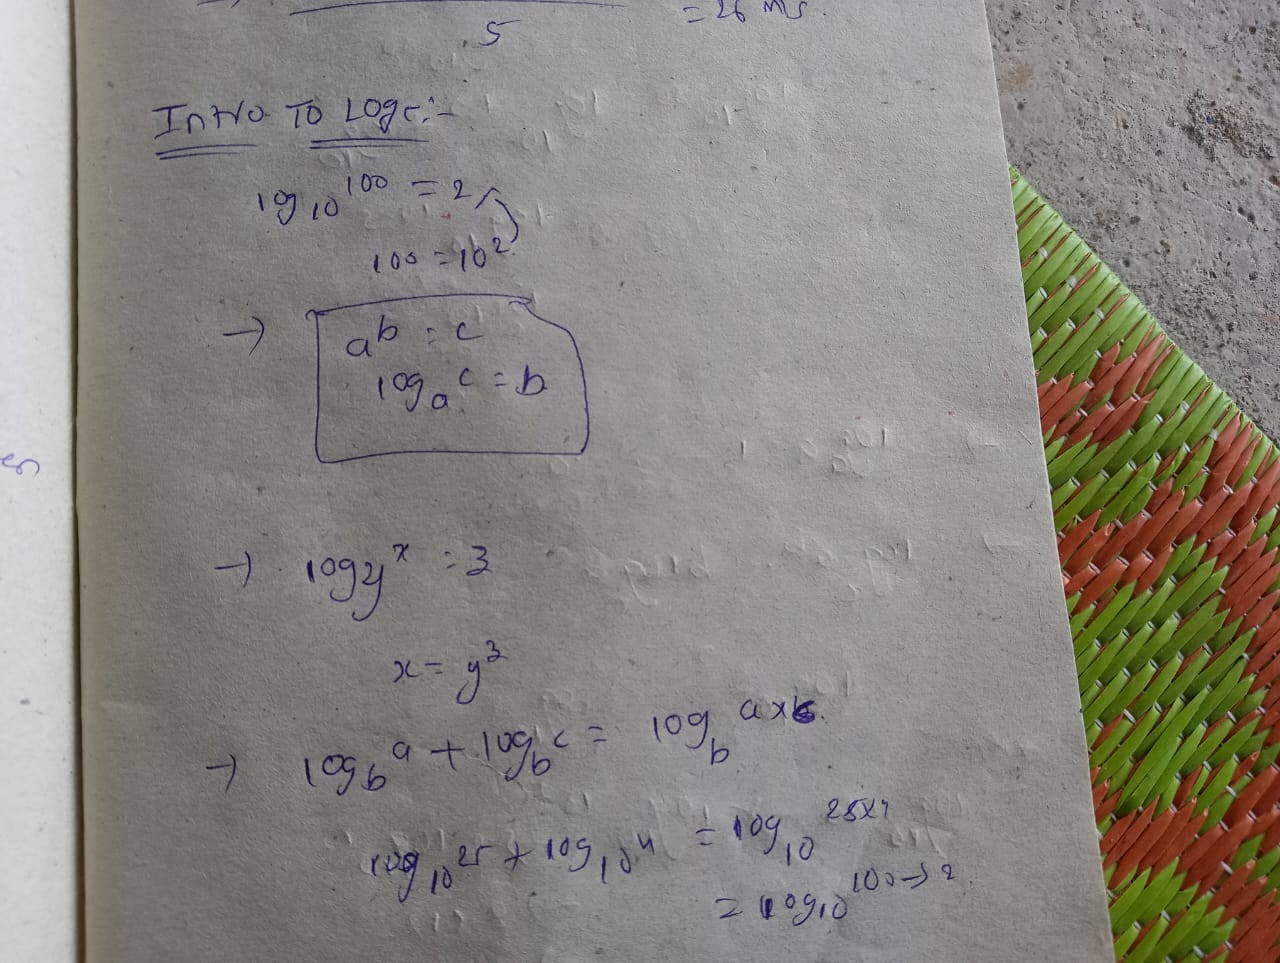 5 = 26 ms.
Intro To Logs:-
log₁₀ 100 = 2
100 = 10²
→ aᵇ = c
logₐ c = b
→ log y ˣ = 3
x = y³
→ log_b a + log_b c = log_b a×c.
log₁₀ 25 + log₁₀ 4 = log₁₀ 25×4
= log₁₀ 100 → 2.